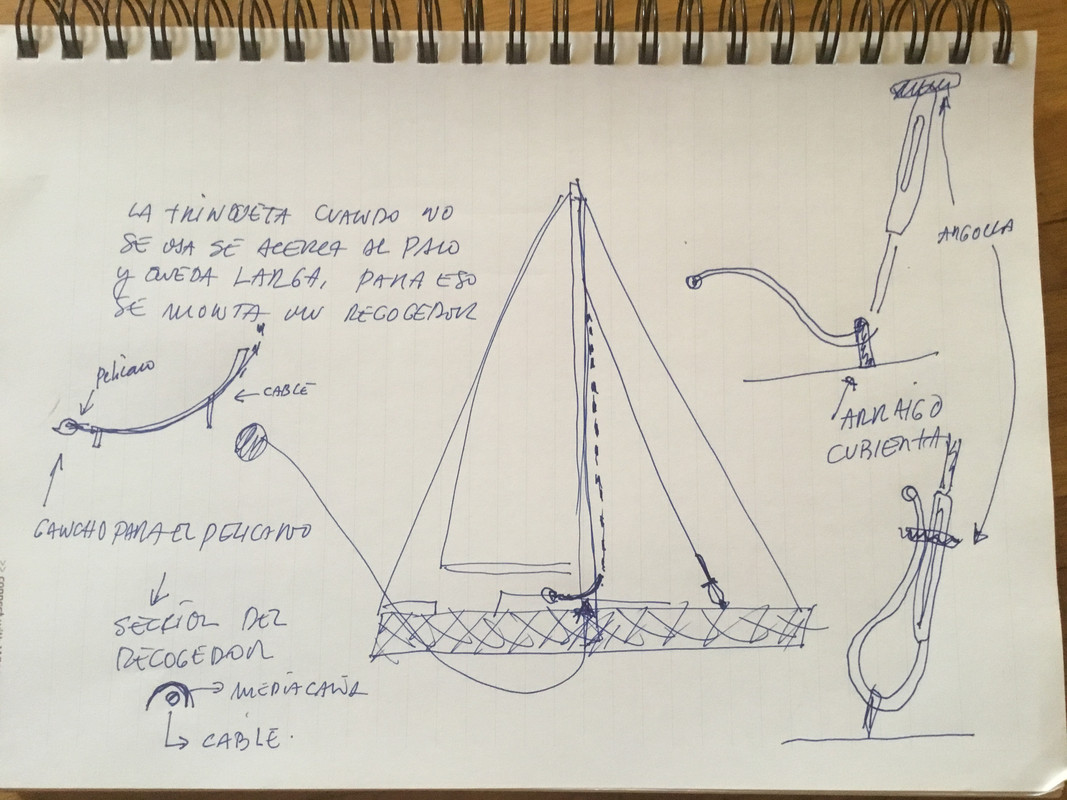 LA TRINQUETA CUANDO NO
SE USA SE ACERCA AL PALO
Y QUEDA LARGA, PARA ESO
SE MONTA UN RECOGEDOR
Pelicano
CABLE
GANCHO PARA EL PELICANO
SECCIÓN DEL
RECOGEDOR
MEDIA CAÑA
CABLE.
ARGOLLA
ARRAIGO
CUBIERTA